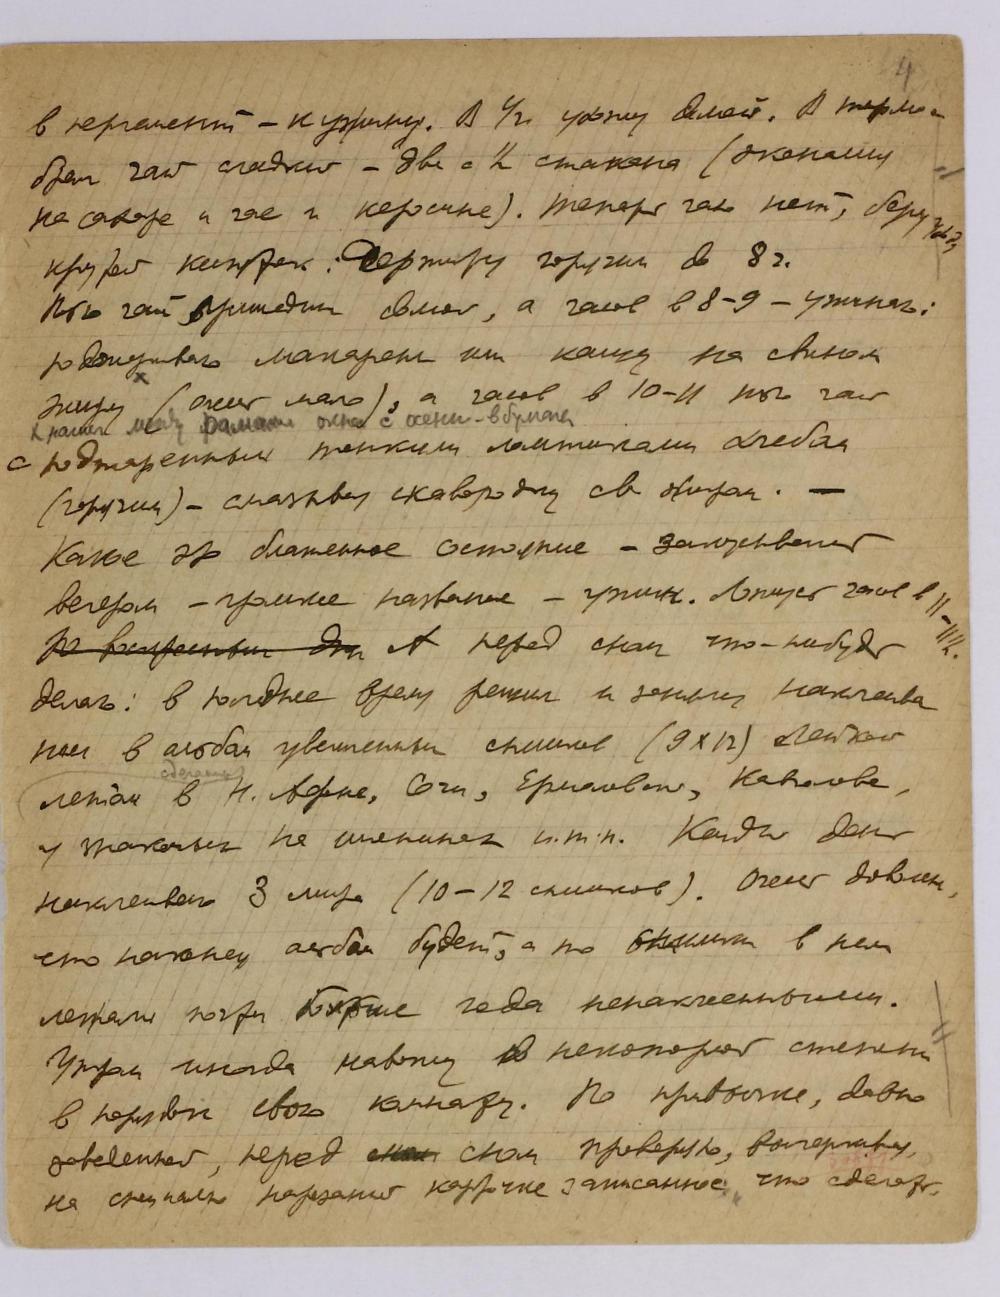 4
в пергамент – к ужину. В 1/2 ухожу домой. В термос
брал чай сладкий – две с 1/2 стакана (экономлю
на сахаре и чае и керосине). Теперь чаю нет, беру
крутой кипяток: держится горячим до 8 ч.
Пью чай, пришедши домой, а часов в 8-9 – ужинаю:
макароны или кашу на свином
жиру (очень мало), а часов в 10-11 пью чай
храним между рамами окна с осени - в бумаге
с поджаренными тонкими ломтиками хлеба
(горячим) – смазываю сковородку св жиром. –
Какое это блаженное – 
вечером – громкое название – ужин. часов в 11-11 1/2.
А перед сном что-нибудь
делаю: в последнее время решил и занимаюсь наклеива
нием в альбом увеличенных снимков (9х12) Лейкой
сделанных
летом в Н. Афоне, Сочи, 
у знакомых на именинах и.т.п. Каждый день
наклеиваю 3 листа (10-12 снимков). Очень доволен,
что наконец альбом будет, а то снимки в нем
лежали почти больше года ненаклеенными.
Утром иногда навожу в некоторой степени
в порядок свою комнату. По привычке, давно
заведенной, перед сном проверяю, вычеркиваю
на специально нарезанной карточке записанное, что сделать,